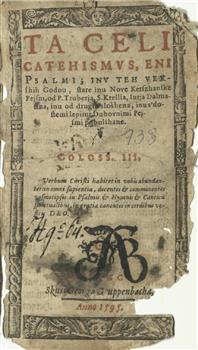 TA CELI
CATEHISMVS, ENI
PSALMI, INV TEH VEK-
shih Godou, stare inu Nove Kerszhanske
Pejsni, od P. Truberja, S. Krellia, Jurja Dalma-
tina, inu od drugih sloshene, inu s'do-
stemi lepimi Duhovnimi Pej-
smi pobulshane.
COLOSS. III.
Verbum Christi habitet in vobis abundan-
ter in omni sapientia, docentes & commonentes
vosmetipsos in Psalmis & Hymnis & Canticis
spiritualibus, in gratia canentes in cordibus ve-
stris DEO.
Skusi Georga Gruppenbacha,
Anno 1595.